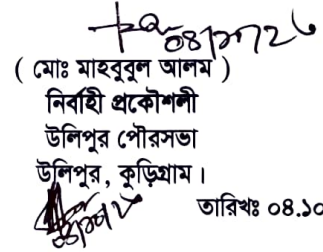 ( মোঃ মাহবুবুল আলম )
নির্বাহী প্রকৌশলী
উলিপুর পৌরসভা
উলিপুর, কুড়িগ্রাম।
তারিখঃ ০৪.১০